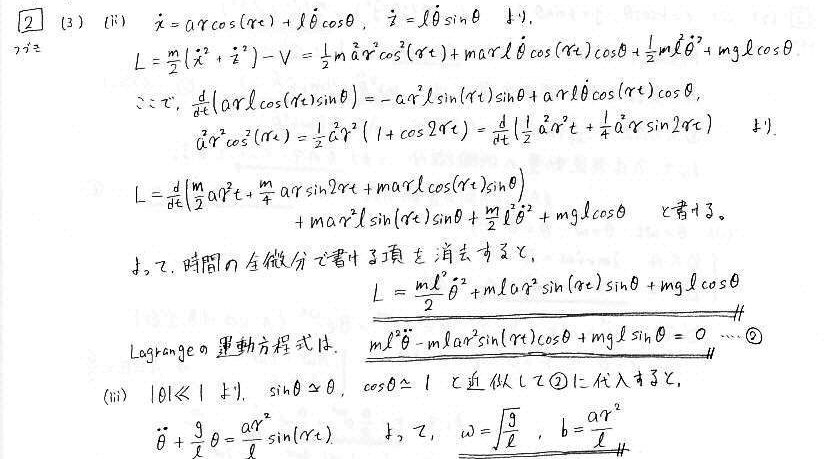 2 (3) (ii) ẋ = aγcos(γt) + lθ̇cosθ, ż = lθ̇sinθ より,
つづき
L = m/2(ẋ² + ż²) - V = 1/2 m a²γ²cos²(γt) + maγlθ̇cos(γt)cosθ + 1/2 ml²θ̇² + mglcosθ.
ここで, d/dt(aγlcos(γt)sinθ) = -aγ²lsin(γt)sinθ + aγlθ̇cos(γt)cosθ,
a²γ²cos²(γt) = 1/2 a²γ²(1 + cos2γt) = d/dt(1/2 a²γ²t + 1/4 a²γsin2γt) より
L = d/dt(m/2 aγ²t + m/4 aγsin2γt + maγlcos(γt)sinθ)
+ maγ²lsin(γt)sinθ + m/2 l²θ̇² + mglcosθ と書ける。
よって, 時間の全微分で書ける項を消去すると,
L = ml²/2 θ̇² + mlaγ²sin(γt)sinθ + mglcosθ
Lagrangeの運動方程式は, ml²θ̈ - mlaγ²sin(γt)cosθ + mglsinθ = 0 ……②
(iii) |θ|≪1 より, sinθ≃θ, cosθ≃1 と近似して②に代入すると,
θ̈ + g/l θ = aγ²/l sin(γt) よって, ω = √(g/l), b = aγ²/l